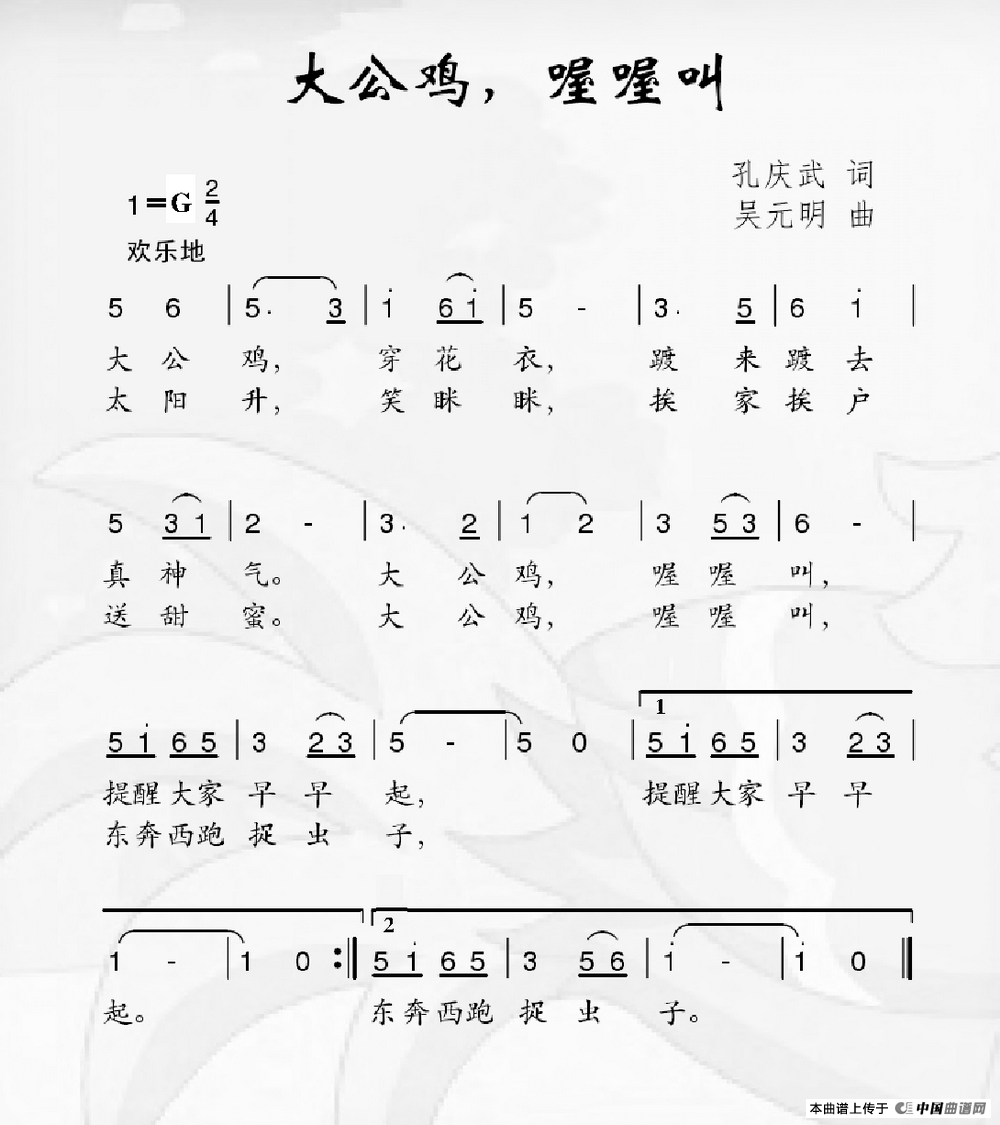 大公鸡，喔喔叫
孔庆武 词
1=G 2/4
吴元明 曲
欢乐地
5 6 | 5. 3 | i 6 i | 5 - | 3. 5 | 6 i |
大 公 鸡， 穿 花 衣， 踱 来 踱 去
太 阳 升， 笑 眯 眯， 挨 家 挨 户
5 3 1 | 2 - | 3. 2 | 1 2 | 3 5 3 | 6 - |
真 神 气。 大 公 鸡， 喔 喔 叫，
送 甜 蜜。 大 公 鸡， 喔 喔 叫，
1
5 i 6 5 | 3 2 3 | 5 - | 5 0 | 5 i 6 5 | 3 2 3 |
提醒大家 早 早 起， 提醒大家 早 早
东奔西跑 捉 虫 子，
2
1 - | 1 0 :‖ 5 i 6 5 | 3 5 6 | i - | i 0 ‖
起。 东奔西跑 捉 虫 子。
本曲谱上传于 中国曲谱网